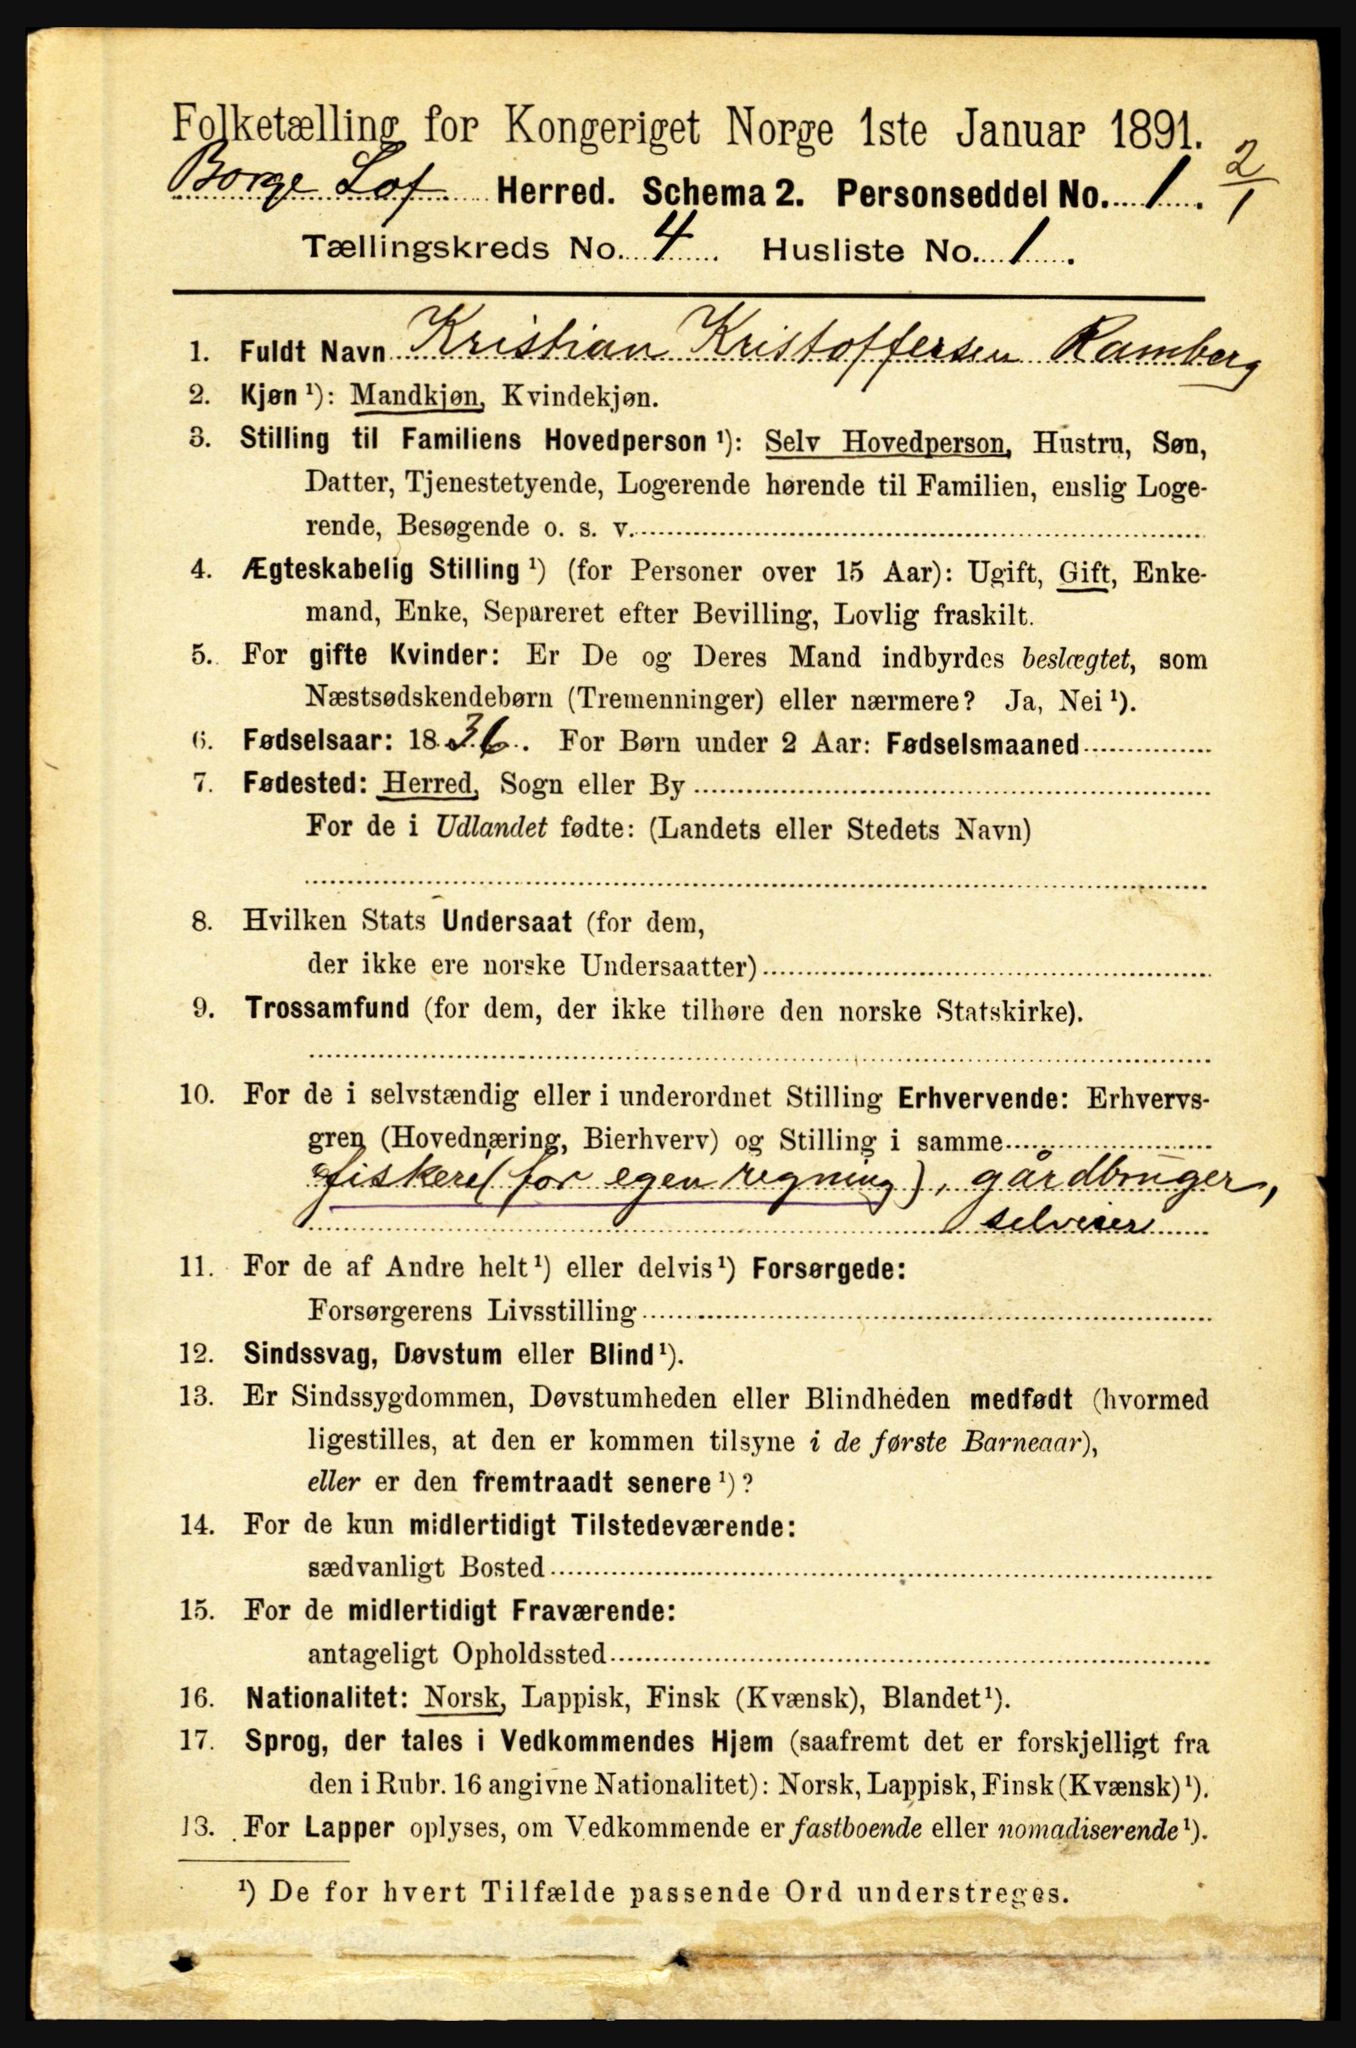 Folketælling for Kongeriget Norge 1ste Januar 1891.
Borge Lof. Herred. Schema 2. Personseddel No. 1. 2/1
Tællingskreds No. 4 Husliste No. 1.
1. Fuldt Navn Kristian Kristoffersen Ramberg
2. Kjøn ¹): Mandkjøn, Kvindekjøn.
3. Stilling til Familiens Hovedperson ¹): Selv Hovedperson, Hustru, Søn,
Datter, Tjenestetyende, Logerende hørende til Familien, enslig Loge-
rende, Besøgende o. s. v.
4. Ægteskabelig Stilling ¹) (for Personer over 15 Aar): Ugift, Gift, Enke-
mand, Enke, Separeret efter Bevilling, Lovlig fraskilt.
5. For gifte Kvinder: Er De og Deres Mand indbyrdes beslægtet, som
Næstsødskendebørn (Tremenninger) eller nærmere? Ja, Nei ¹).
6. Fødselsaar: 1836. For Børn under 2 Aar: Fødselsmaaned
7. Fødested: Herred, Sogn eller By
For de i Udlandet fødte: (Landets eller Stedets Navn)
8. Hvilken Stats Undersaat (for dem,
der ikke ere norske Undersaatter)
9. Trossamfund (for dem, der ikke tilhøre den norske Statskirke).
10. For de i selvstændig eller i underordnet Stilling Erhvervende: Erhvervs-
gren (Hovednæring, Bierhverv) og Stilling i samme
fisker (for egen regning), gårdbruger,
selveier
11. For de af Andre helt ¹) eller delvis ¹) Forsørgede:
Forsørgerens Livsstilling
12. Sindssvag, Døvstum eller Blind ¹).
13. Er Sindssygdommen, Døvstumheden eller Blindheden medfødt (hvormed
ligestilles, at den er kommen tilsyne i de første Barneaar),
eller er den fremtraadt senere ¹)?
14. For de kun midlertidigt Tilstedeværende:
sædvanligt Bosted
15. For de midlertidigt Fraværende:
antageligt Opholdssted
16. Nationalitet: Norsk, Lappisk, Finsk (Kvænsk), Blandet ¹).
17. Sprog, der tales i Vedkommendes Hjem (saafremt det er forskjelligt fra
den i Rubr. 16 angivne Nationalitet): Norsk, Lappisk, Finsk (Kvænsk) ¹).
13. For Lapper oplyses, om Vedkommende er fastboende eller nomadiserende ¹).
¹) De for hvert Tilfælde passende Ord understreges.